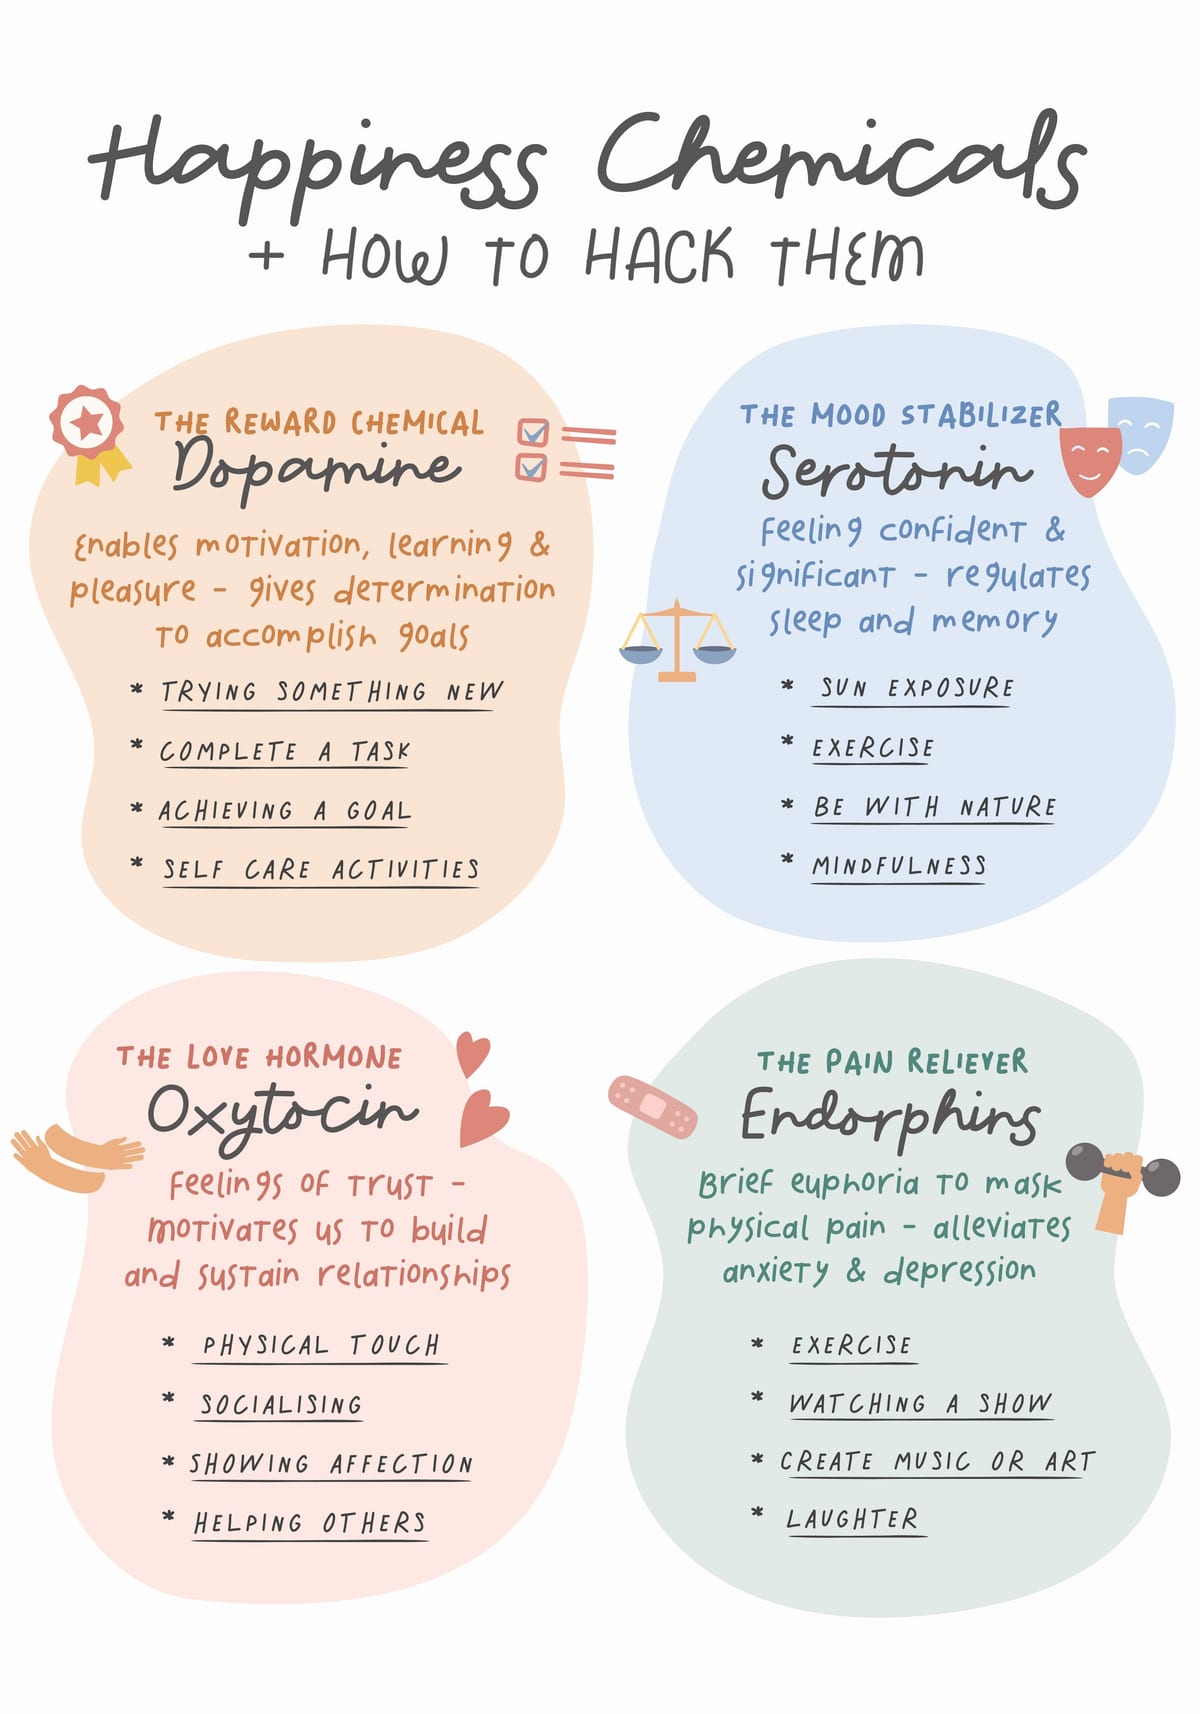 Happiness Chemicals
+ HOW TO HACK THEM
THE REWARD CHEMICAL
Dopamine
Enables motivation, learning &
pleasure - gives determination
to accomplish goals
* TRYING SOMETHING NEW
* COMPLETE A TASK
* ACHIEVING A GOAL
* SELF CARE ACTIVITIES
THE MOOD STABILIZER
Serotonin
Feeling confident &
significant - regulates
sleep and memory
* SUN EXPOSURE
* EXERCISE
* BE WITH NATURE
* MINDFULNESS
THE LOVE HORMONE
Oxytocin
Feelings of trust -
motivates us to build
and sustain relationships
* PHYSICAL TOUCH
* SOCIALISING
* SHOWING AFFECTION
* HELPING OTHERS
THE PAIN RELIEVER
Endorphins
Brief euphoria to mask
physical pain - alleviates
anxiety & depression
* EXERCISE
* WATCHING A SHOW
* CREATE MUSIC OR ART
* LAUGHTER